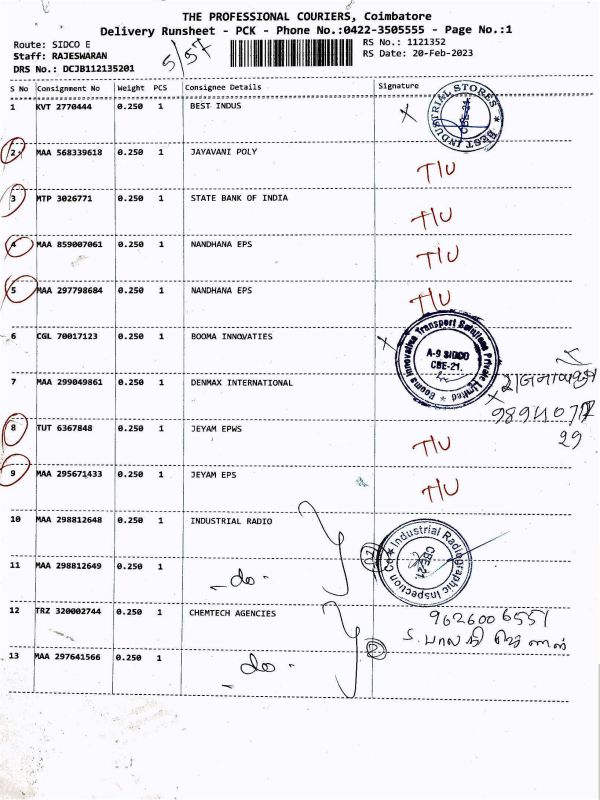 THE PROFESSIONAL COURIERS, Coimbatore
Delivery Runsheet - PCK - Phone No.:0422-3505555 - Page No.:1
Route: SIDCO E
Staff: RAJESWARAN
DRS No.: DCJB112135201
5/57
RS No.: 1121352
RS Date: 20-Feb-2023
S No Consignment No Weight PCS Consignee Details Signature
1 KVT 2770444 0.250 1 BEST INDUS
BEST INDUSTRIAL STORES * CBE-21
2 MAA 568339618 0.250 1 JAYAVANI POLY T/U
3 MTP 3026771 0.250 1 STATE BANK OF INDIA T/U
4 MAA 859007061 0.250 1 NANDHANA EPS T/U
5 MAA 297798684 0.250 1 NANDHANA EPS T/U
6 CGL 70017123 0.250 1 BOOMA INNOVATIES
Booma Innovative Transport Solutions Private Limited *
A-9 SIDCO
CBE-21.
7 MAA 299049861 0.250 1 DENMAX INTERNATIONAL
29
8 TUT 6367848 0.250 1 JEYAM EPWS T/U
9 MAA 295671433 0.250 1 JEYAM EPS T/U
10 MAA 298812648 0.250 1 INDUSTRIAL RADIO
Industrial Radiographic Inspection Co *
CBE-21.
11 MAA 298812649 0.250 1 - do -
12 TRZ 320002744 0.250 1 CHEMTECH AGENCIES
9626006551
13 MAA 297641566 0.250 1 - do -